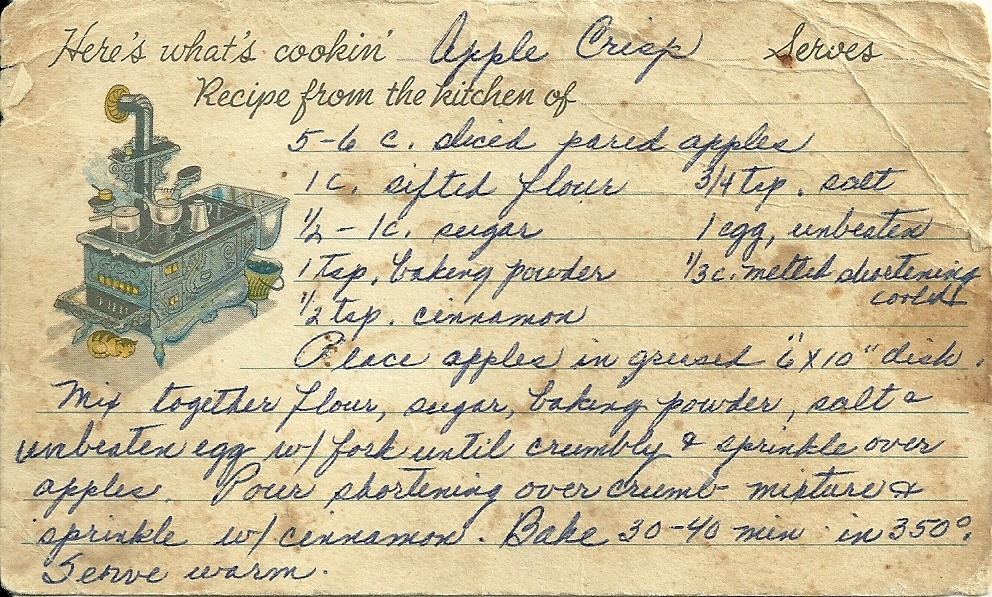 Here's what's cookin' Apple Crisp Serves
Recipe from the kitchen of
5-6 c. sliced pared apples
1 c. sifted flour 3/4 tsp. salt
1/2 - 1 c. sugar 1 egg, unbeaten
1 tsp. baking powder 1/3 c. melted shortening
cooled
1/2 tsp. cinnamon
Place apples in greased 6 x 10" dish.
Mix together flour, sugar, baking powder, salt &
unbeaten egg w/ fork until crumbly & sprinkle over
apples. Pour shortening over crumb mixture &
sprinkle w/ cinnamon. Bake 30-40 min in 350°.
Serve warm.